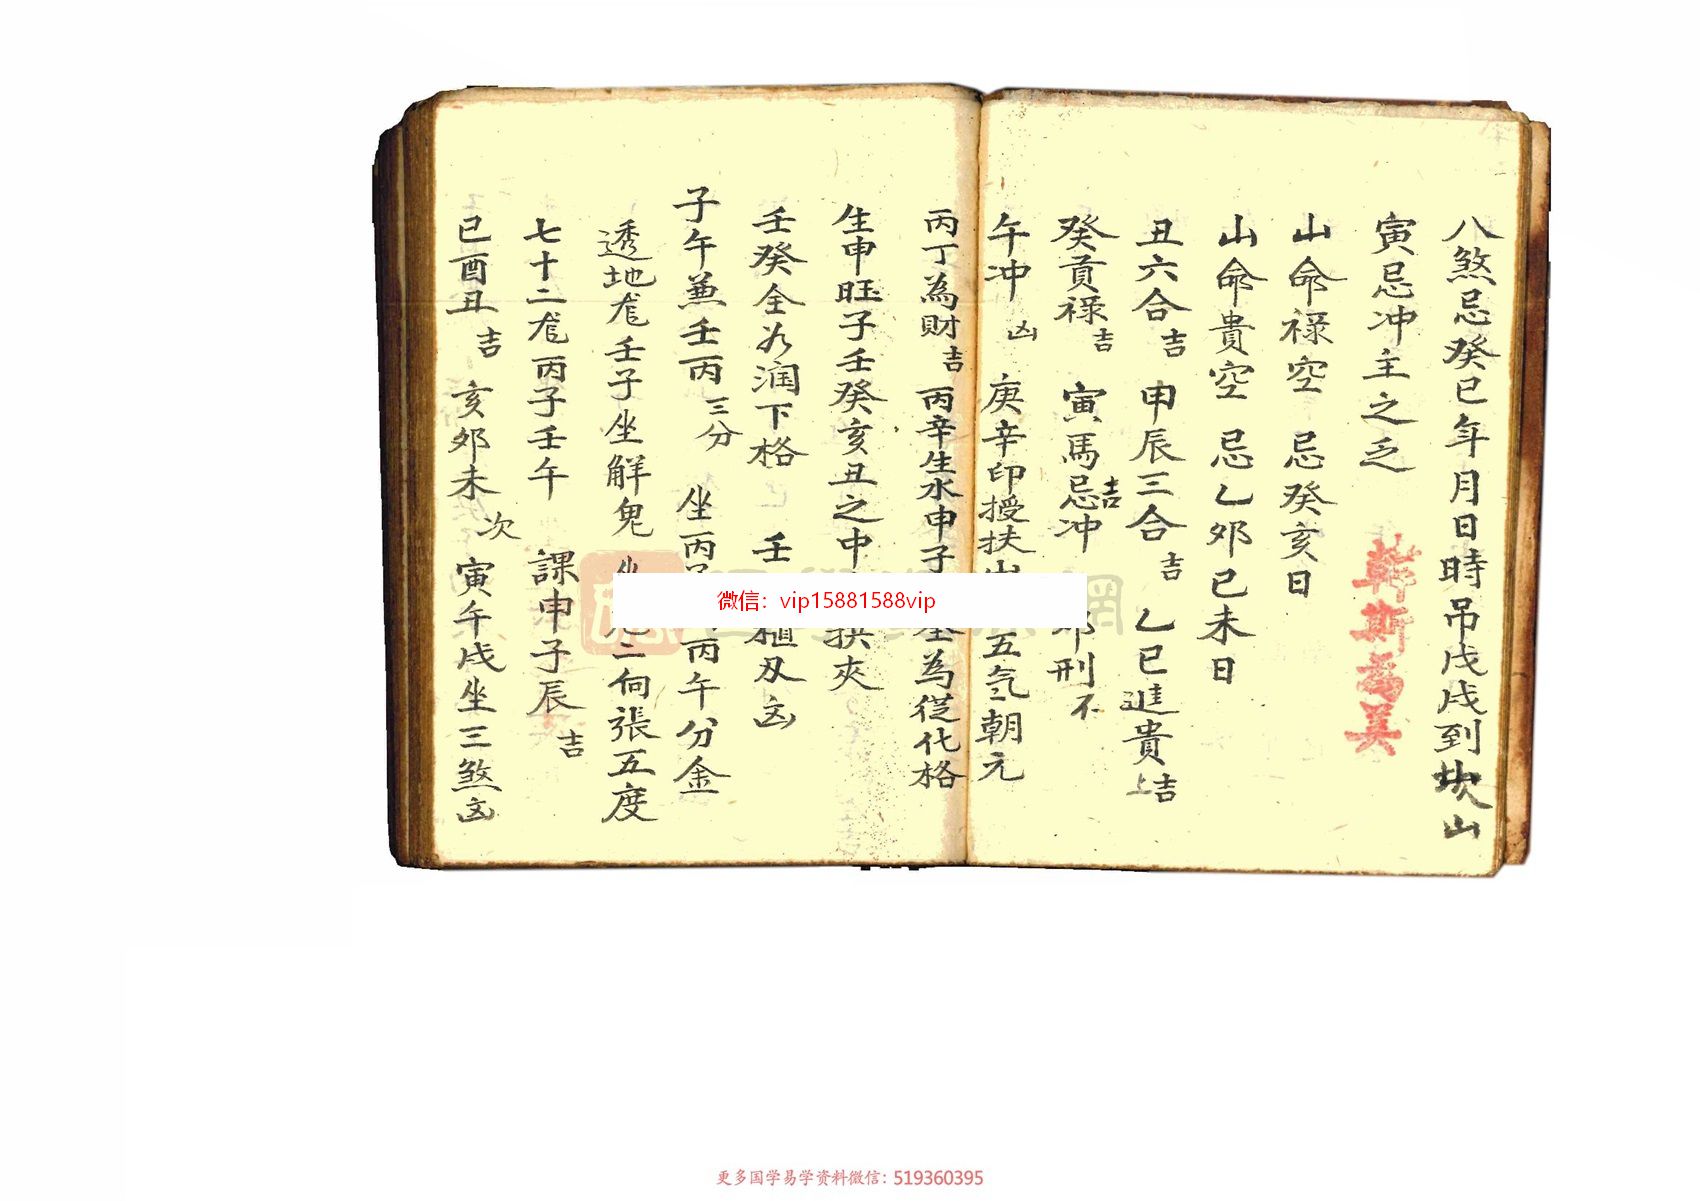 八煞忌癸巳年月日時吊戊戌到坎山
寅忌冲主之乏
山命禄空 忌癸亥日
山命貴空 忌乙卯己未日
丑六合吉 申辰三合吉 乙巳進貴上吉
癸貢禄吉 寅馬忌冲吉 卯刑不
午冲 凶 庚辛印授扶山 五氣朝元
丙丁為財吉 丙辛生水申子 為從化格
生申旺子壬癸亥丑之中 拱夾
壬癸全为润下格 壬 刄凶
子午兼壬丙三分 坐丙子 丙午分金
透地龙壬子坐觧鬼 坐 二向張五度
七十二龙丙子壬午 課申子辰吉
巳酉丑吉 亥卯未次 寅午戌坐三煞凶
微信：vip15881588vip
更多国学易学资料微信：519360395